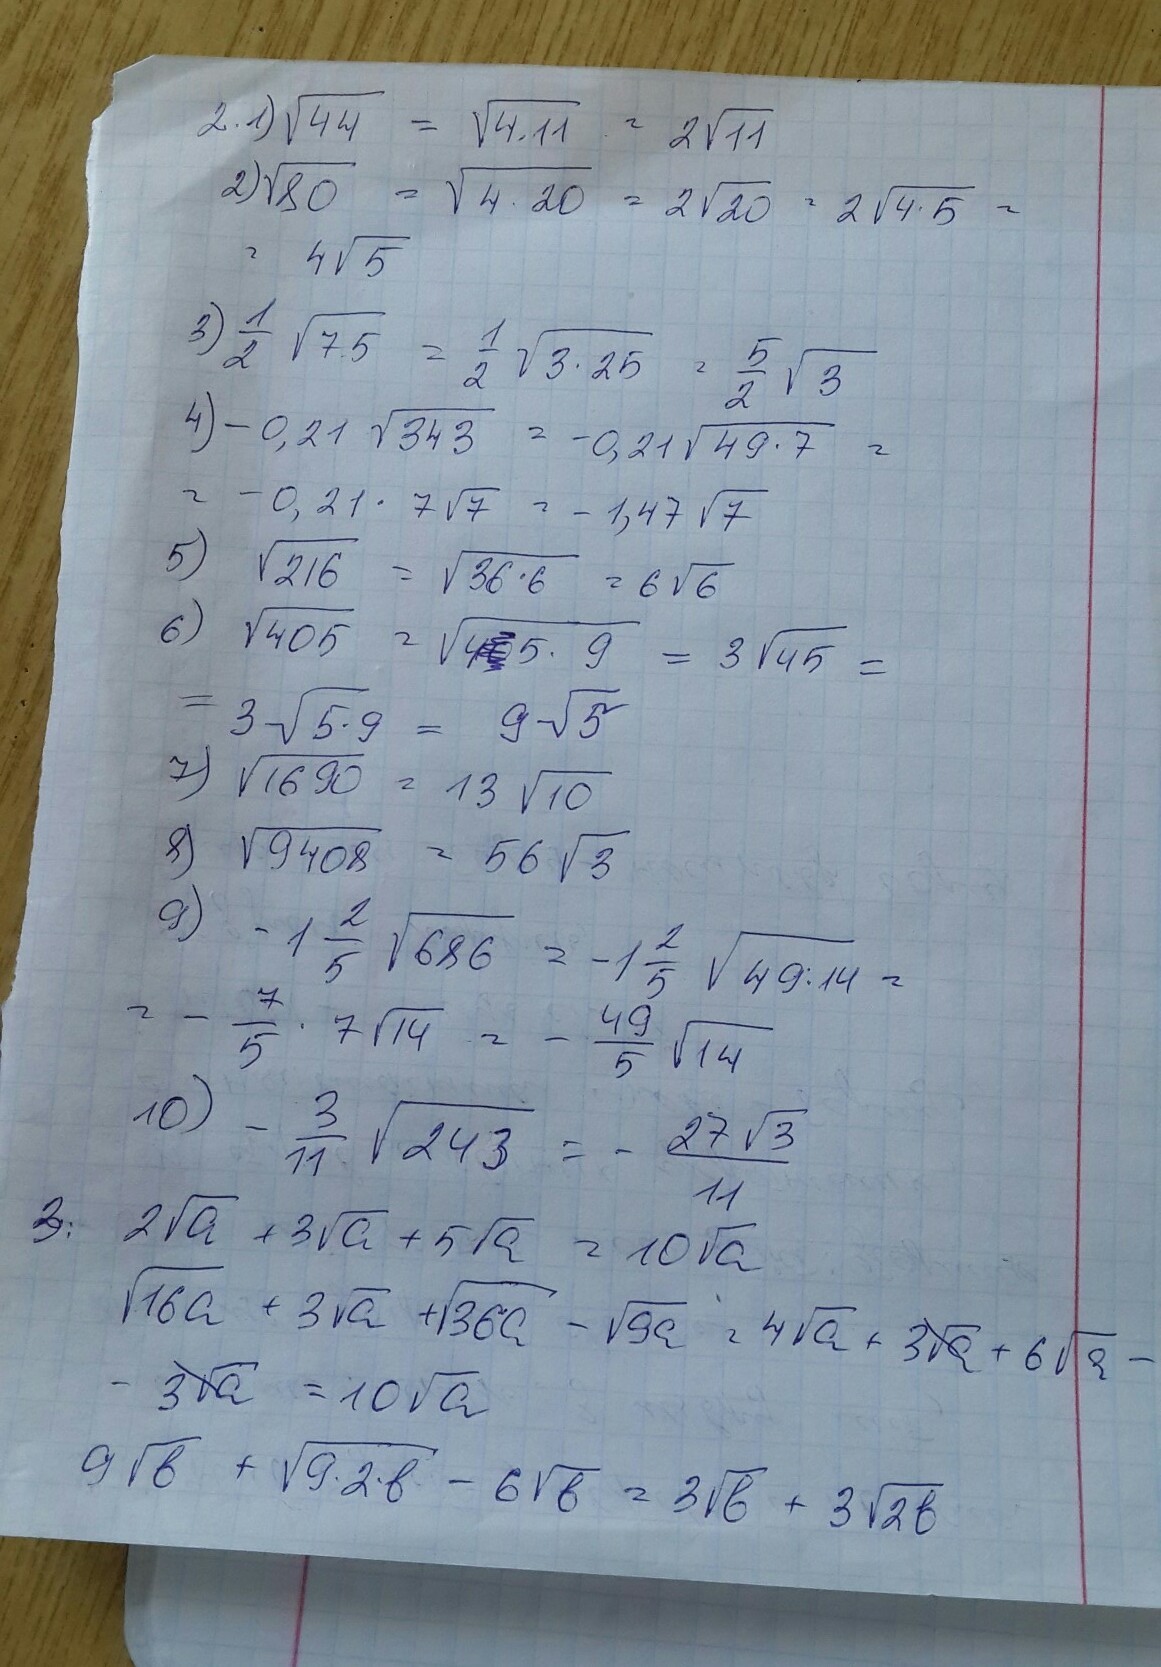 2.1) √44 = √4·11 = 2√11
2) √80 = √4·20 = 2√20 = 2√4·5 =
= 4√5
3) 1/2 √75 = 1/2 √3·25 = 5/2 √3
4) -0,21 √343 = -0,21√49·7 =
= -0,21·7√7 = -1,47√7
5) √216 = √36·6 = 6√6
6) √405 = √45·9 = 3√45 =
= 3√5·9 = 9√5
7) √1690 = 13√10
8) √9408 = 56√3
9) -1 2/5 √686 = -1 2/5 √49·14 =
= -7/5 · 7√14 = -49/5 √14
10) -3/11 √243 = -27√3/11
3. 2√a + 3√a + 5√a = 10√a
√16a + 3√a + √36a - √9a = 4√a + 3√a + 6√a -
- 3√a = 10√a
9√b + √9·2·b - 6√b = 3√b + 3√2b